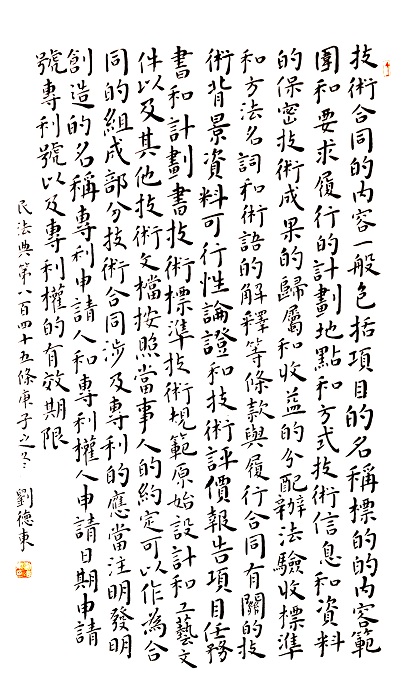 技術合同的內容一般包括項目的名稱標的的內容範
圍和要求履行的計劃地點和方式技術信息和資料
的保密技術成果的歸屬和收益的分配辦法驗收標準
和方法名詞和術語的解釋等條款與履行合同有關的技
術背景資料可行性論證和技術評價報告項目任務
書和計劃書技術標準技術規範原始設計和工藝文
件以及其他技術文檔按照當事人的約定可以作為合
同的組成部分技術合同涉及專利的應當注明發明
創造的名稱專利申請人和專利權人申請日期申請
號專利號以及專利權的有效期限
民法典第八百四十五條庚子之冬 劉德東